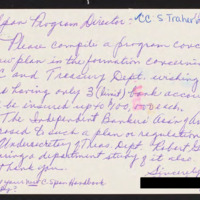 Span Program Director: CC S. Traher
Please compile a program conce
new plan in the formation concerni
C and Treasury Dept. wishing
having only 3 (limit) bank accoun
be insured up to 100, each.
The Independent Bankers Assoc. are
posed to such a plan or regulation
Undersecretary of Treas. Dept. Robert G
erings department study of it also
hank you.
Sincerely
your new C-Span Handbook